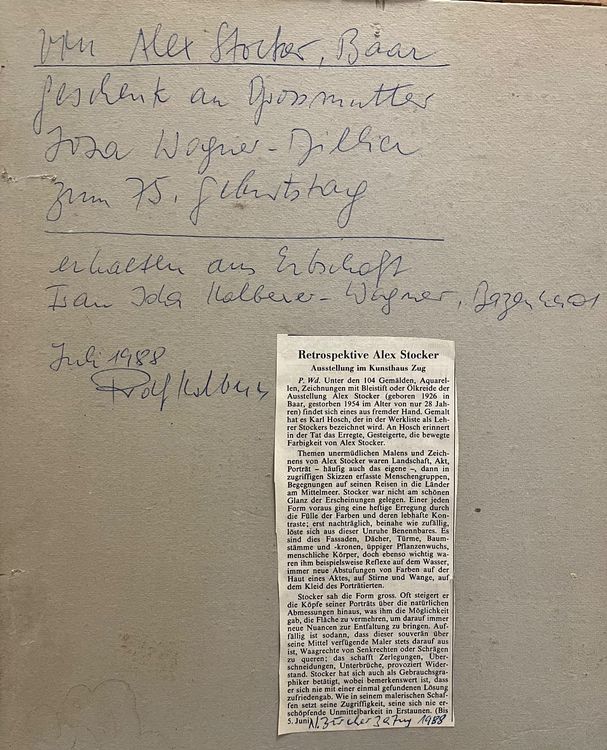 von Alex Stocker, Baar
Geschenk an Grossmutter
Wagner-
zum 75. Geburtstag
erhalten aus Erbschaft
Frau Ida Kolberer-Wagner,
Juli 1988
Rolf
Retrospektive Alex Stocker
Ausstellung im Kunsthaus Zug
P. Wd. Unter den 104 Gemälden, Aquarel-
len, Zeichnungen mit Bleistift oder Ölkreide der
Ausstellung Alex Stocker (geboren 1926 in
Baar, gestorben 1954 im Alter von nur 28 Jah-
ren) findet sich eines aus fremder Hand. Gemalt
hat es Karl Hosch, der in der Werkliste als Leh-
rer Stockers bezeichnet wird. An Hosch erinnert
in der Tat das Erregte, Gesteigerte, die bewegte
Farbigkeit von Alex Stocker.
Themen unermüdlichen Malens und Zeich-
nens von Alex Stocker waren Landschaft, Akt,
Porträt – häufig auch das eigene –, dann in
zugriffigen Skizzen erfasste Menschengruppen,
Begegnungen auf seinen Reisen in die Länder
am Mittelmeer. Stocker war nicht am schönen
Glanz der Erscheinungen gelegen. Einer jeden
Form voraus ging eine heftige Erregung durch
die Fülle der Farben und deren lebhafte Kon-
traste; erst nachträglich, beinahe wie zufällig,
löste sich aus dieser Unruhe Benennbares. Es
sind dies Fassaden, Dächer, Türme, Baum-
stämme und -kronen, üppiger Pflanzenwuchs,
menschliche Körper, doch ebenso wichtig wa-
ren ihm beispielsweise Reflexe auf dem Wasser,
immer neue Abstufungen von Farben auf der
Haut eines Aktes, auf Stirne und Wange, auf
dem Kleid des Porträtierten.
Stocker sah die Form gross. Oft steigert er
die Köpfe seiner Porträts über die natürlichen
Abmessungen hinaus, was ihm die Möglichkeit
gab, die Fläche zu vermehren, um darauf immer
neue Nuancen zur Entfaltung zu bringen. Auf-
fällig ist sodann, dass dieser souverän über
seine Mittel verfügende Maler stets darauf aus
ist, Waagrechte von Senkrechten oder Schrägen
zu queren; das schafft Zerlegungen, Über-
schneidungen, Unterbrüche, provoziert Wider-
stand. Stocker hat sich auch als Gebrauchsgra-
phiker betätigt, wobei bemerkenswert ist, dass
er sich nie mit einer einmal gefundenen Lösung
zufriedengab. Wie in seinem malerischen Schaf-
fen setzt seine Zugriffigkeit, seine sich nie er-
schöpfende Unmittelbarkeit in Erstaunen. (Bis
5. Juni 1988